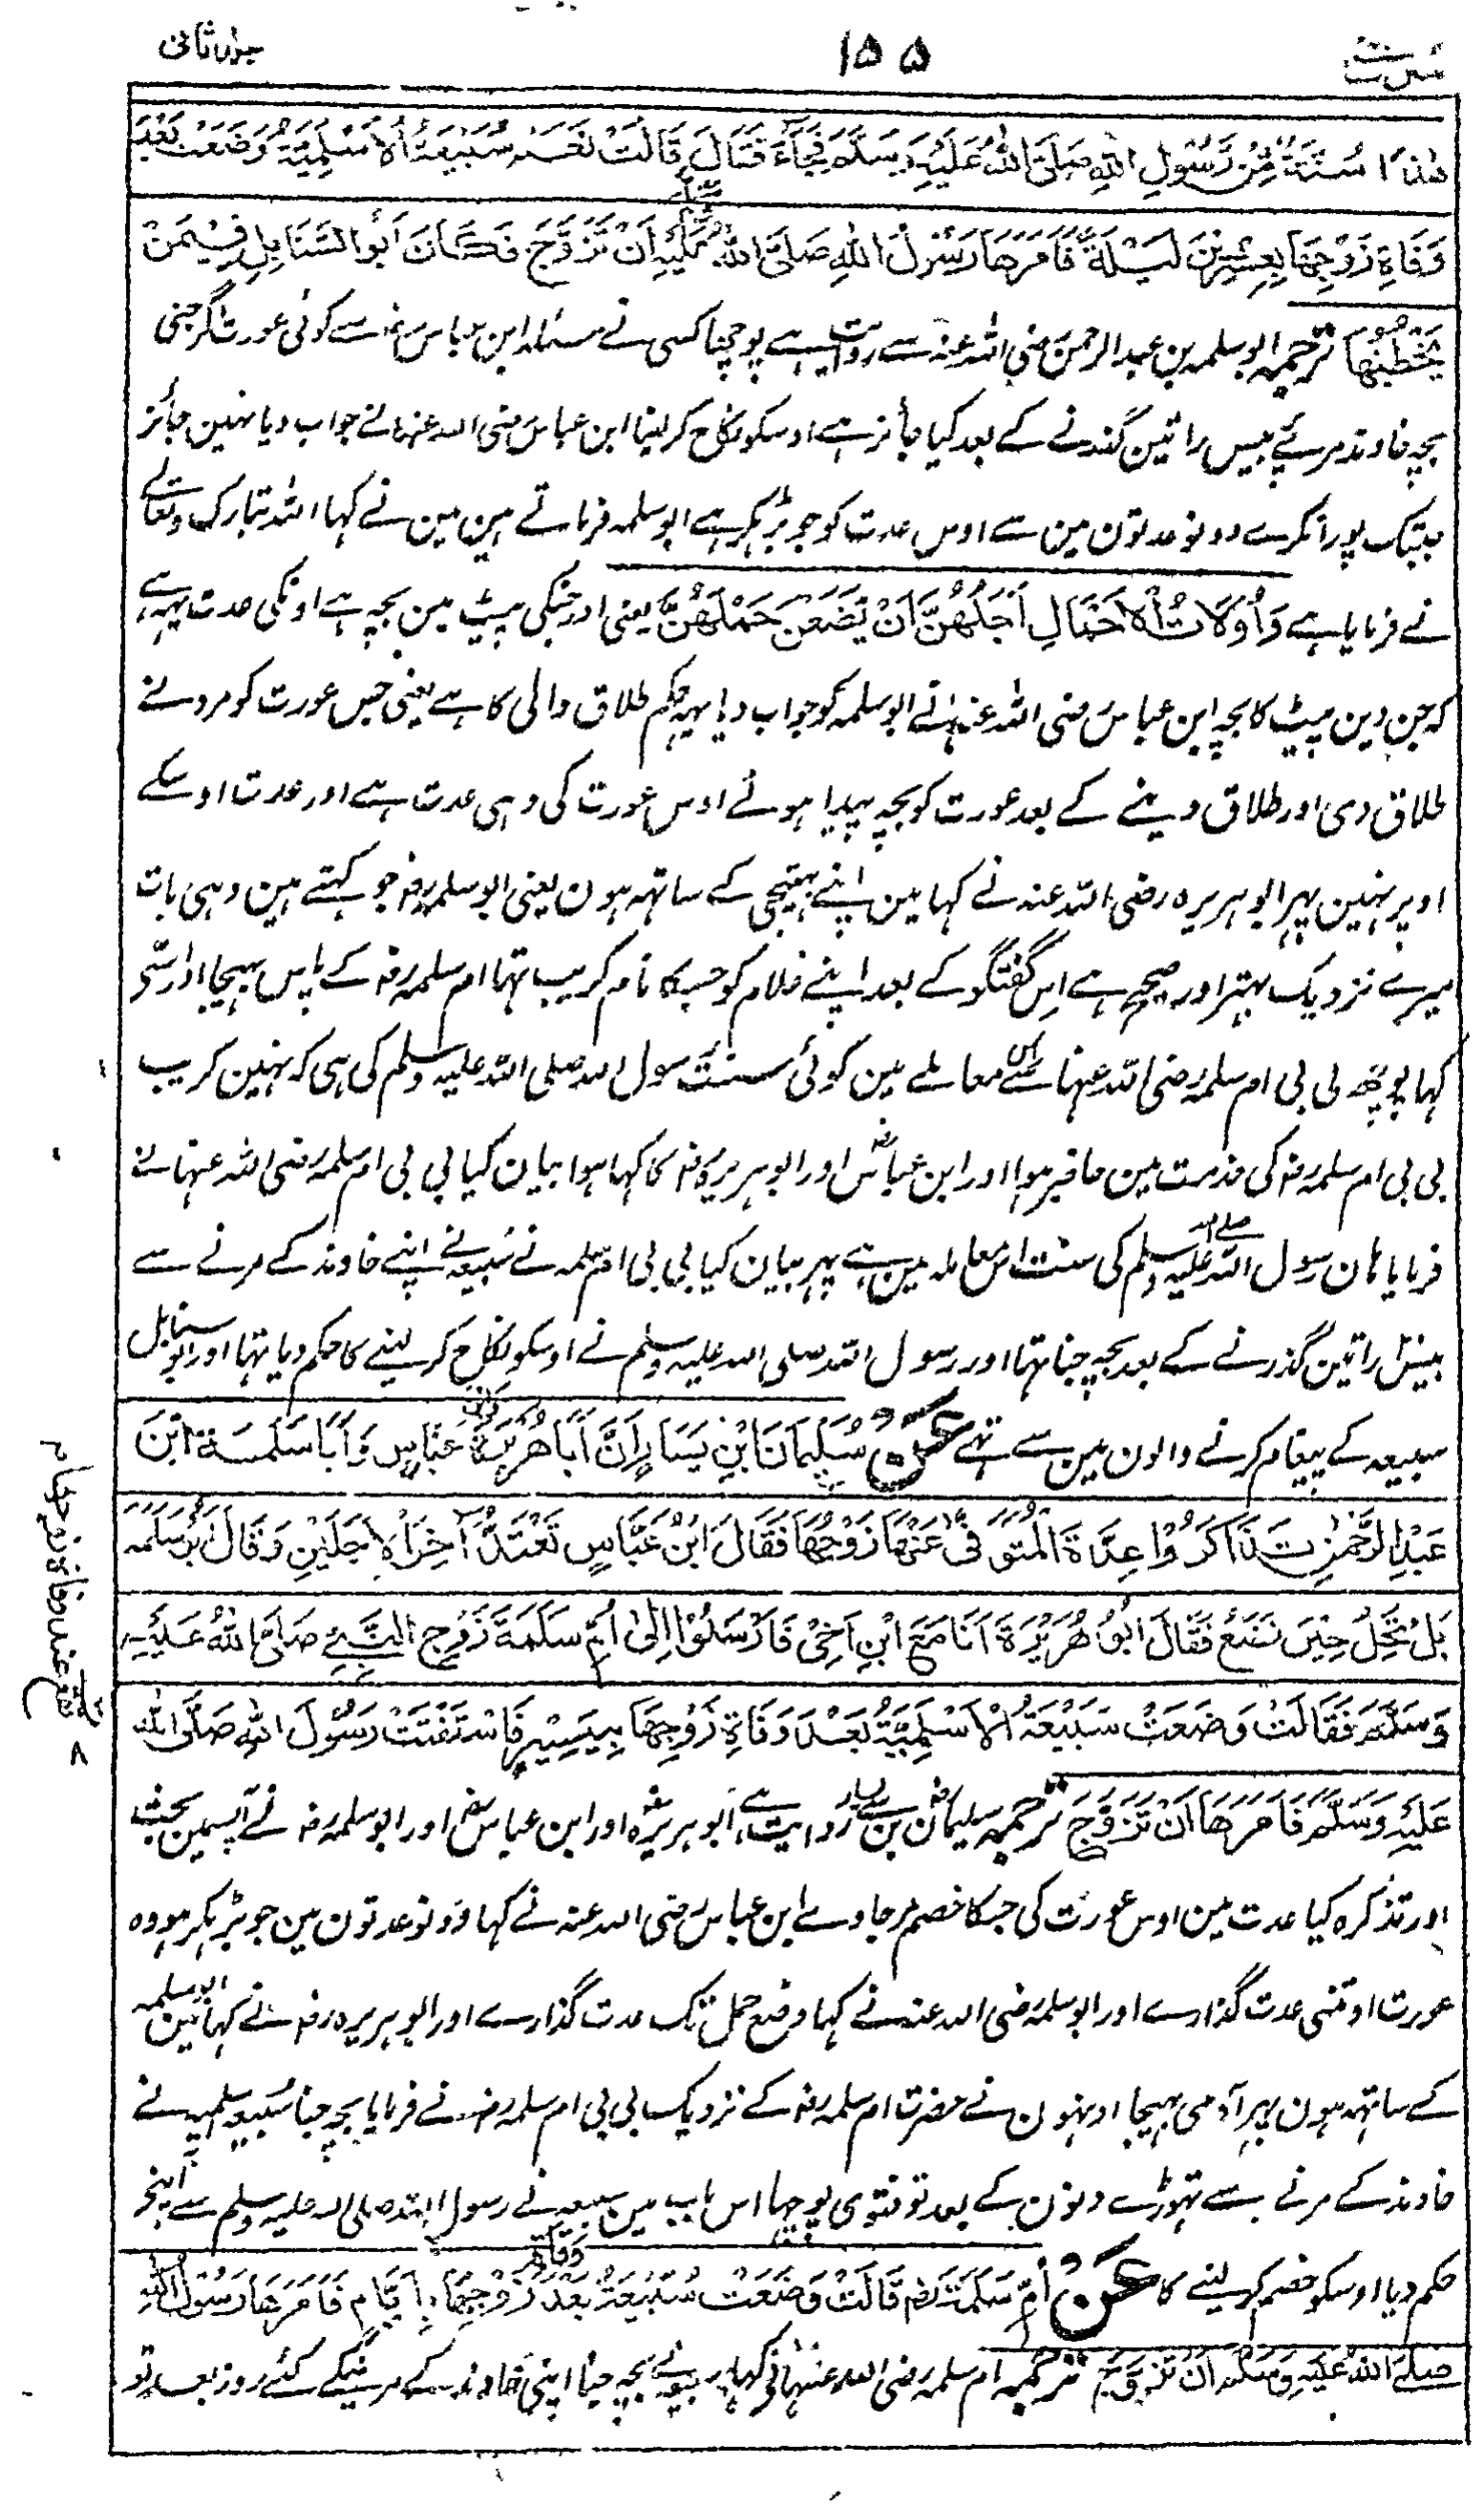 ۱۵۵
جلد ثانی
هٰذَا سُنَّةٌ مِّنْ رَّسُوْلِ اللهِ صَلَّى اللهُ عَلَيْهِ وَسَلَّمَ فَجَاءَ فَقَالَ قَالَتْ نَعَمْ سُبَيْعَةُ الْاَسْلَمِيَّةُ وَضَعَتْ بَعْدَ
وَفَاةِ زَوْجِهَا بِعِشْرِيْنَ لَيْلَةً فَاَمَرَهَا رَسُوْلُ اللهِ صَلَّى اللهُ عَلَيْهِ اَنْ تَزَوَّجَ فَكَانَ اَبُو السَّنَابِلِ فِيْمَنْ
يَخْطُبُهَا ترجمہ ابو سلمہ بن عبد الرحمن رضی اللہ عنہ سے روایت ہے پوچھا کسی نے مسئلہ ابن عباس رضہ سے کوئی عورت اگر جنی
بچہ خاوند مرئے پر بیس راتین گذرنے کے بعد کیا جائز ہے اوسکو نکاح کر لینا ابن عباس رضی اللہ عنہما نے جواب دیا نہین جائز
جبتک پورا نکرے دونو عدتون مین سے اوس عدت کو جو بڑہکر ہے ابو سلمہ فرماتے ہین مین نے کہا اللہ تبارک و تعالے
نے فرمایا ہے وَاُوْلَاتُ الْاَحْمَالِ اَجَلُهُنَّ اَنْ يَّضَعْنَ حَمْلَهُنَّ یعنی اور جنکی پیٹ مین بچہ ہے اونکی عدت یہہ ہے
کہ جن دین پیٹ کا بچہ ابن عباس رضی اللہ عنہما نے ابو سلمہ کو جواب دیا یہہ حکم طلاق والی کا ہے یعنی جس عورت کو مرد نے
طلاق دی اور طلاق دینے کے بعد عورت کو بچہ پیدا ہوئے اوس عورت کی وہی عدت ہے اور عدت اوسکے
اوپر نہین پہر ابو ہریرہ رضی اللہ عنہ نے کہا مین اپنے بہتیجی کے ساتہہ ہون یعنی ابو سلمہ رضہ جو کہتے ہین وہی بات
میرے نزدیک بہتر اور صحیح ہے اس گفتگو کے بعد اپنے غلام کو جسکا نام کریب تہا ام سلمہ رضہ کے پاس بہیجا اور اسی
کہا پوچھ بی بی ام سلمہ رضی اللہ عنہا سے اس معاملے مین کوئی سنت رسول اللہ صلی اللہ علیہ وسلم کی ہی کہ نہین کریب
بی بی ام سلمہ رضہ کی خدمت مین حاضر ہوا اور ابن عباس اور ابو ہریرہ رضہ کا کہا ہوا بیان کیا بی بی ام سلمہ رضی اللہ عنہا نے
فرمایا ہان رسول اللہ صلے اللہ علیہ وسلم کی سنت اس معاملہ مین ہے پہر بیان کیا بی بی ام سلمہ نے سُبیعہ نے اپنے خاوند کے مرنے سے
بیس راتین گذرنے کے بعد بچہ جنا تہا اور رسول اللہ صلی اللہ علیہ وسلم نے اوسکو نکاح کر لینے کا حکم دیا تہا اور ابو سنابل
سبیعہ کے پیغام کرنے والون مین سے تہے عَنْ سُلَيْمَانَ ابْنِ يَسَارٍ اَنَّ اَبَا هُرَيْرَةَ وَابْنَ عَبَّاسٍ وَاَبَا سَلَمَةَ ابْنَ
عَبْدِ الرَّحْمٰنِ تَذَاكَرُوْا عِدَّةَ الْمُتَوَفّٰى عَنْهَا زَوْجُهَا فَقَالَ ابْنُ عَبَّاسٍ تَعْتَدُّ آخِرَ الْاَجَلَيْنِ وَقَالَ اَبُوْ سَلَمَةَ
بَلْ تَحِلُّ حِيْنَ تَضَعُ فَقَالَ اَبُوْ هُرَيْرَةَ اَنَا مَعَ ابْنِ اَخِيْ فَاَرْسَلُوْا اِلٰى اُمِّ سَلَمَةَ زَوْجِ النَّبِيِّ صَلَّى اللهُ عَلَيْهِ
وَسَلَّمَ فَقَالَتْ وَضَعَتْ سُبَيْعَةُ الْاَسْلَمِيَّةُ بَعْدَ وَفَاةِ زَوْجِهَا بِيَسِيْرٍ فَاسْتَفْتَتْ رَسُوْلَ اللهِ صَلَّى اللهُ
عَلَيْهِ وَسَلَّمَ فَاَمَرَهَا اَنْ تَزَوَّجَ ترجمہ سلیمان بن یسار رضہ سے روایت ہے ابو ہریرہ اور ابن عباس اور ابو سلمہ رضہ نے آپسمین بحث
اور تذکرہ کیا عدت مین اوس عورت کی جسکا خصم مر جاوے ابن عباس رضی اللہ عنہ نے کہا دونو عدتون مین جو بڑہکر ہو وہ
عورت اوتنی عدت گذارے اور ابو سلمہ رضی اللہ عنہ نے کہا وضع حمل تک عدت گذارے اور ابو ہریرہ رضہ نے کہا مین ابو سلمہ
کے ساتہہ ہون پہر آدمی بہیجا اونہون نے حضرت ام سلمہ رضہ کے نزدیک بی بی ام سلمہ رضہ نے فرمایا بچہ جنا سُبیعہ اسلمیہ نے
خاوند کے مرنے سے تہوڑے دنون کے بعد تو فتوی پوچہا اس باب مین سبیعہ نے رسول اللہ صلی اللہ علیہ وسلم سے
حکم دیا اوسکو خصم کر لینے کا عَنْ اُمِّ سَلَمَةَ قَالَتْ وَضَعَتْ سُبَيْعَةُ بَعْدَ وَفَاةِ زَوْجِهَا بِاَيَّامٍ فَاَمَرَهَا رَسُوْلُ اللهِ
صَلَّى اللهُ عَلَيْهِ وَسَلَّمَ اَنْ تَزَوَّجَ ترجمہ ام سلمہ رضی اللہ عنہا نے کہا سبیعہ نے بچہ جنا اپنی خاوند کے مرنیکے کئے روز بعد تو